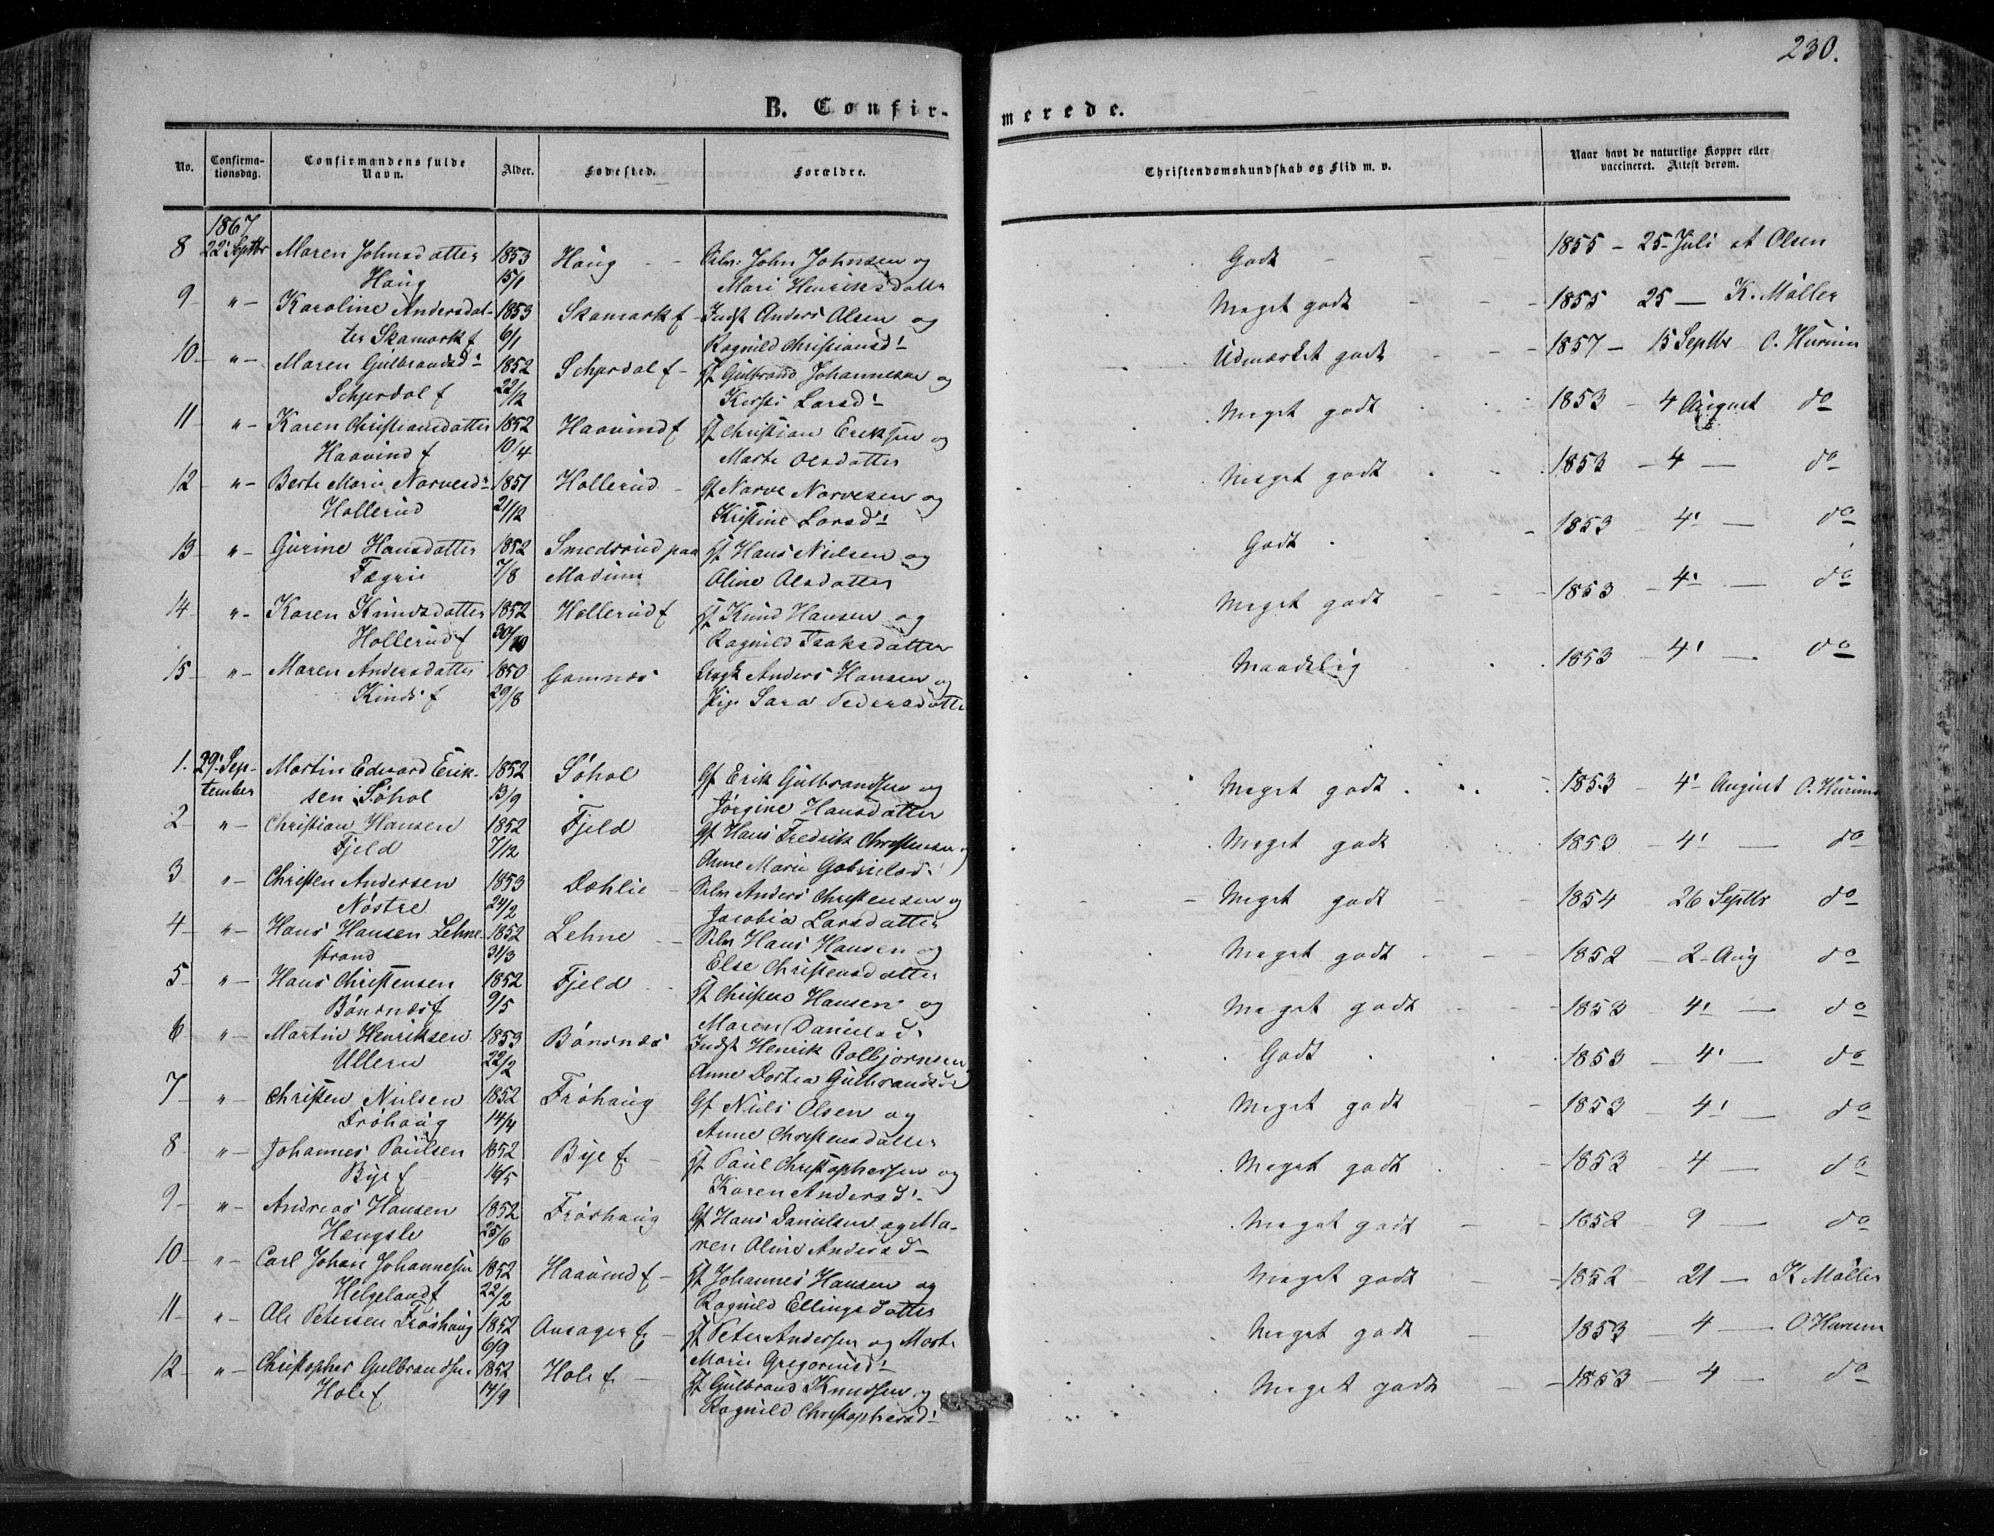 230.
B. Confirmerede.
No.
Confirma-
tionsdag.
Confirmandens fulde
Navn.
Alder.
Fødested.
Forældre.
Christendomskundskab og Flid m. v.
Naar havt de naturlige Kopper eller
vaccineret. Attest derom.
1867
8 22' Septbr Maren Johnsdatter 1853 Haug - - John Johnsen og Godt - - 1855 - 25 - Juli at Olsen
Haug 15/1 Mari Henriksdatter
9 - " - Karoline Andersdat- 1853 Skamark f - Indst Anders Olsen og Meget godt - - 1855 25 - K. Møller
ter Skamark f 6/1 Ragnild Christiansd!
10 - " - Maren Gulbrandsd - 1852 Schjerdal f - Gulbrand Johannesen og Udmærket godt - - 1857 - 15 Septbr O. Hurum
Schjerdal f 22/12 Kersti Larsd!
11 - " - Karen Christiansdatter 1852 Haavind f Christian Eriksen og Meget godt 1853 - 4 August do
Haavind f 10/4 Marte Olsdatter
12 - " - Berte Marie Narvesd - 1851 Hollerud - Gf Narve Narvesen og Meget godt 1853 - 4 - do
Hollerud 21/12 Kristine Larsd!
13 - " - Gurine Hansdatter 1852 Smedsrud paa Hans Nielsen og Godt 1853 - 4' - do
Fægrie 7/8 Modum Oline Olsdatter
14 - " - Karen Knudsdatter 1852 Hollerud f Knud Hansen og Meget godt - - 1853 - 4' - do
Hollerud f 30/10 Ragnild Isaksdatter
15 - " - Maren Andersdatter 1850 Gomnæs Anders Hansen og Maadelig 1853 - 4' - do
Kinds f 29/8 Pige Sara Pedersdatter
1. 29' Sep- Martin Edvard Erik- 1852 Søhol Gf Erik Gulbrandsen og Meget godt 1853 - 4' August O. Hurum
tember sen Søhol 13/9 Jørgine Hansdatter
2 - " - Christian Hansen 1852 Fjeld Gf Hans Fredrik Christensen og Meget godt 1853 - 4' - do
Fjeld 7/12 Anne Marie Gabrielsd!
3 " - Christen Andersen 1853 Dæhlie - Selv Anders Christensen og Meget godt - - 1854 26 Septbr do
Nøstre 24/2 Jacobia Larsdatter
4 - " - Hans Hansen Lehne- 1852 Lehne - Selv Hans Hansen og Meget godt - - 1852 - 2 - Aug do
strand 31/3 Else Christensdatter
5 " - Hans Christensen 1852 Fjeld Christen Hansen og Meget godt - - 1853 - 4' - do
Bønsnæs f 9/5 Maren Danielsd.
6 " - Martin Henriksen 1853 Bønsnæs Indst Henrik Colbjørnsen Godt 1853 - 4' - do
Ullern 22/2 Anne Dortea Gulbrandsd
7 " - Christen Nielsen 1852 Frøhaug Gf Niels Olsen og Meget godt - - 1853 - 4' - do
Frøhaug 14/4 Anne Christensdatter
8 " - Johannes Paulsen 1852 Bye f - Paul Christophersen og Meget godt 1853 - 4 - do
Bye f 16/5 Karen Andersd!
9 - " - Andreas Hansen 1852 Frøshaug Gf Hans Danielsen og Ma- Meget godt - 1852 - 9 - do
Hængsle 25/6 ren Oline Andersd -
10 - " - Carl Johan Johannesen 1852 Haavind f - Johannes Hansen og Meget godt - - 1852 - 21 - K Møller
Helgeland f 22/2 Ragnild Ellingsdatter
11 - " - Ole Petersen Frøshaug 1852 Onsager f - Peter Andersen og Marte Meget godt - 1853 - 4 - O. Hurum
6/9 Marie Gregoriusd!
12 - " - Christopher Gulbrandsen 1852 Hole f - Gulbrand Knudsen og Meget godt - - 1853 - 4 - do
Hole f 14/9 Ragnild Christophersd!